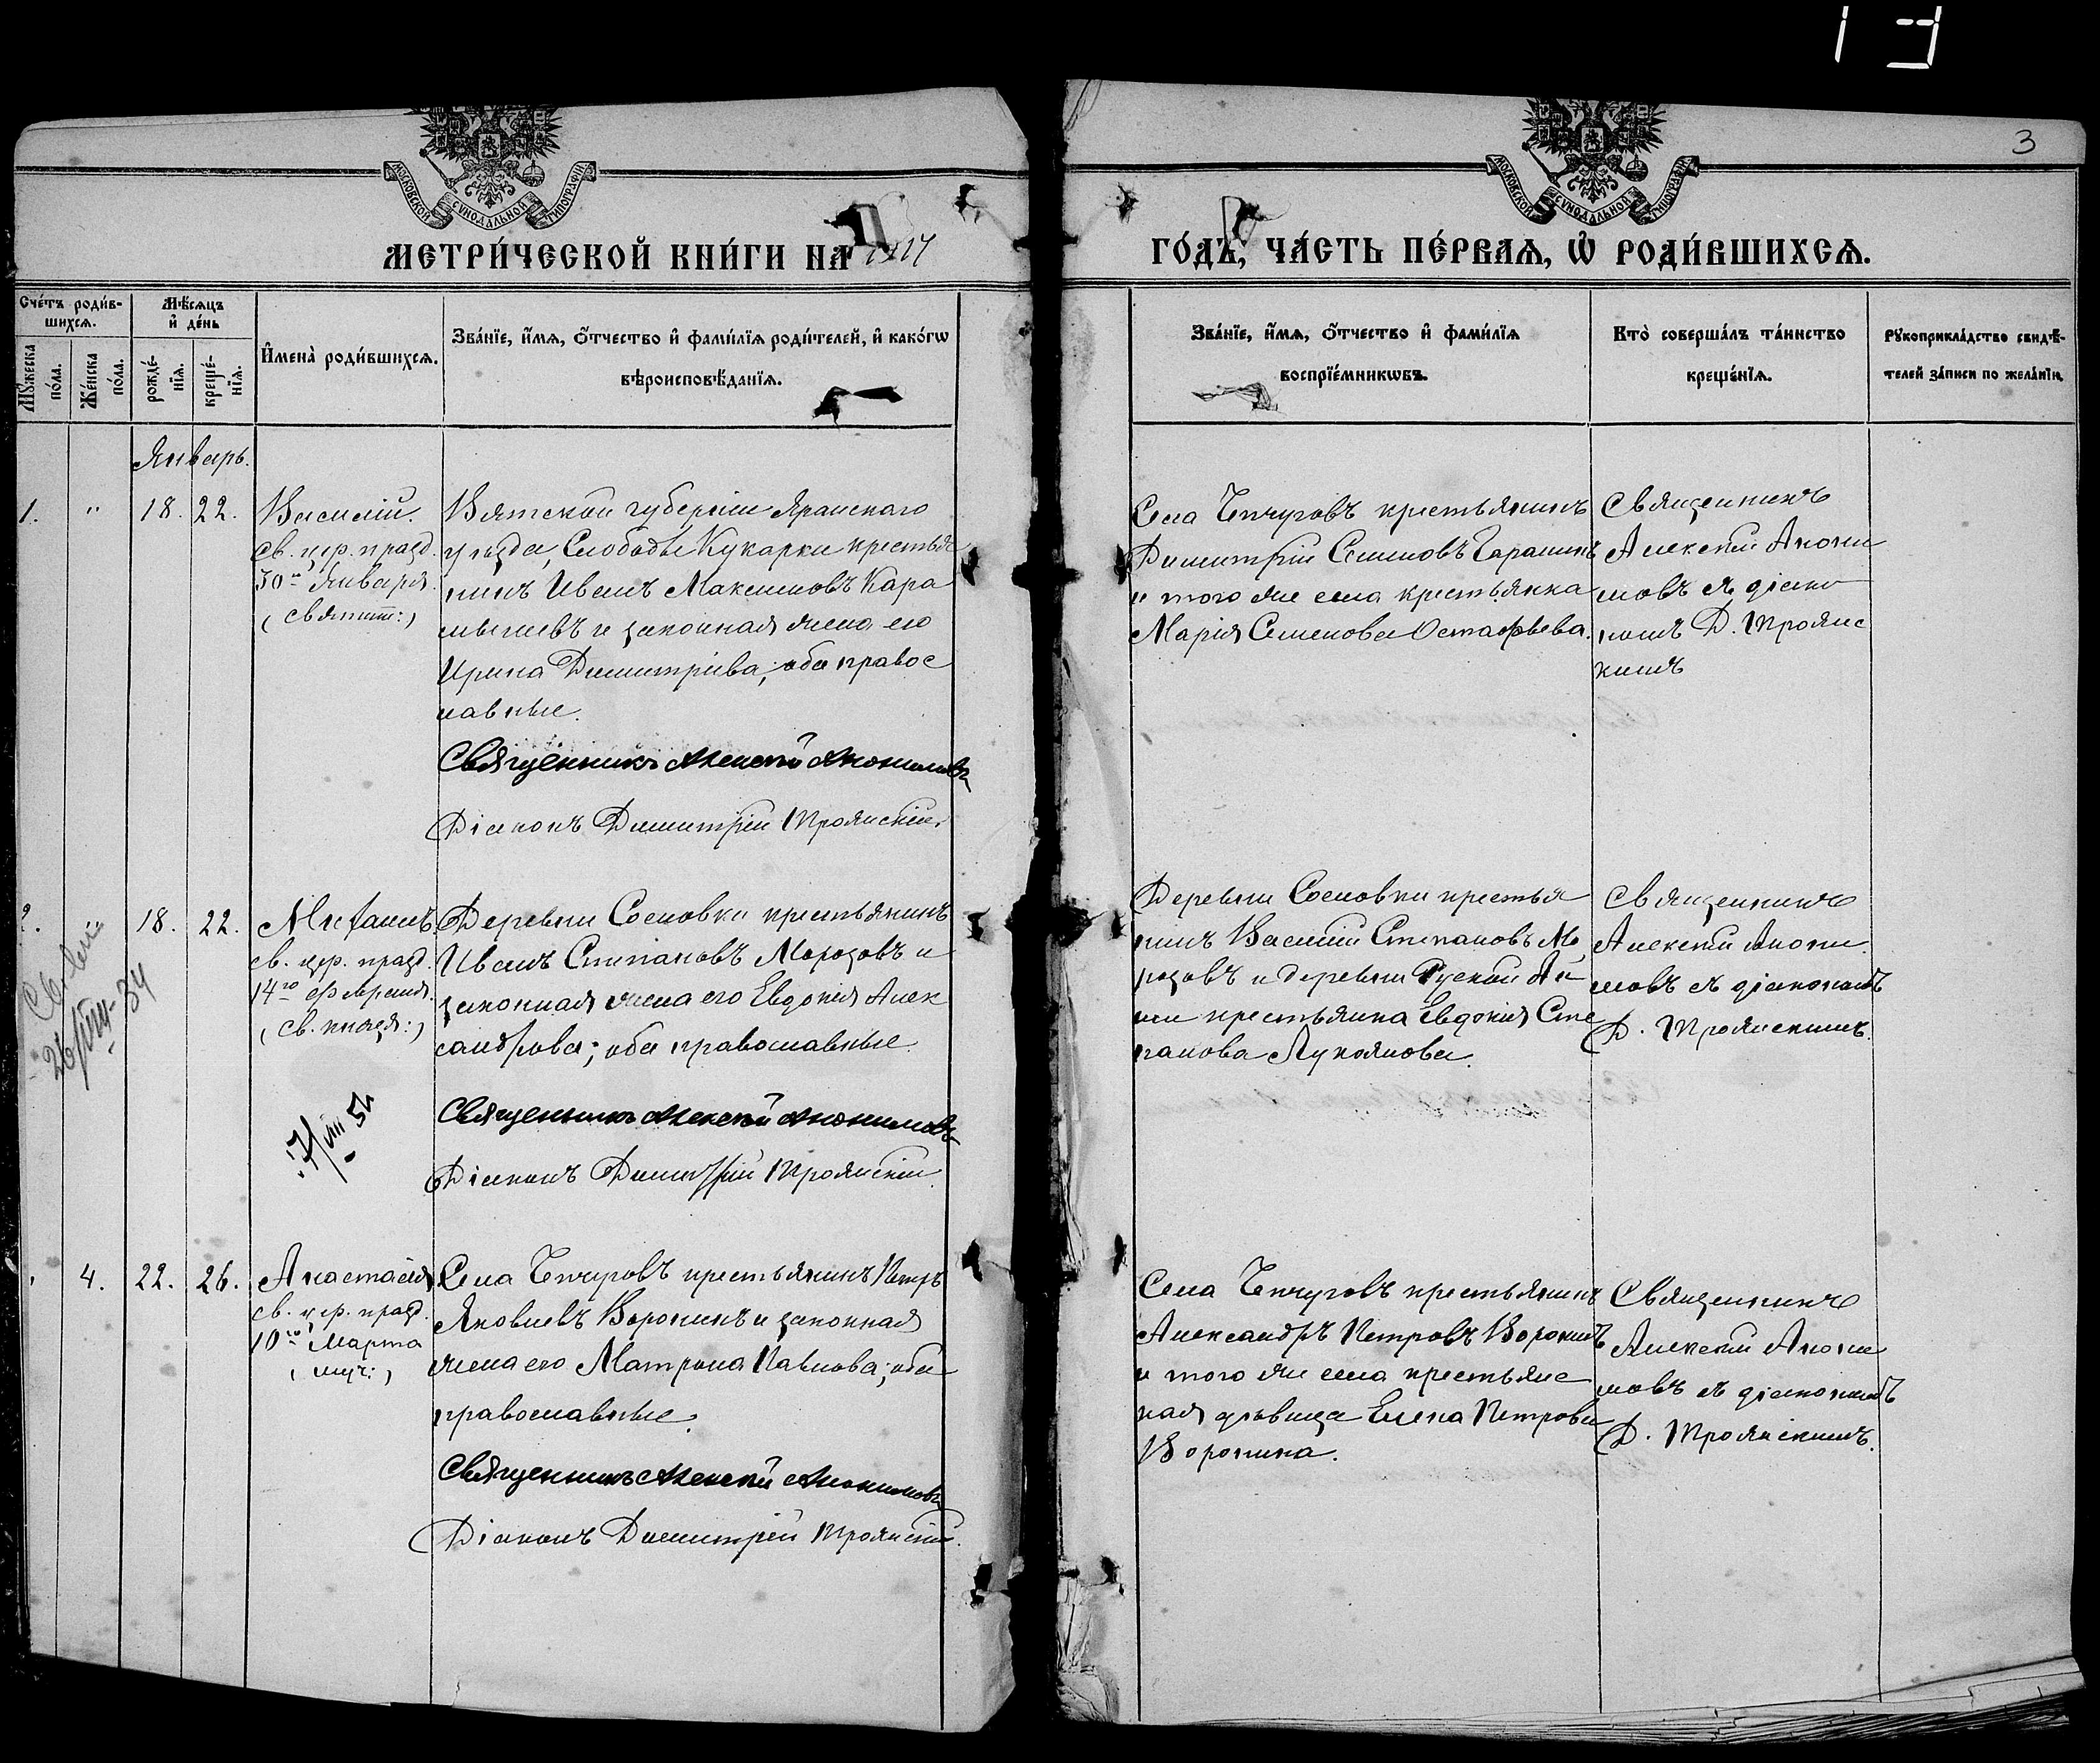 3
МОСКОВСКОЙ СѴНОДАЛЬНОЙ ТИПОГРАФІИ
МОСКОВСКОЙ СѴНОДАЛЬНОЙ ТИПОГРАФІИ
МЕТРИ́ЧЕСКОЙ КНИ́ГИ НА 1917
ГО́ДЪ, ЧА́СТЬ ПЕ́РВАѦ, Ѿ РОДИ́ВШИХСѦ.
Сче́тъ роди́в-
шихсѧ.
Мꙋ́жеска
по́ла.
Же́нска
по́ла.
Мѣ́сѧцъ
и҆ де́нь
рожде́-
нїѧ.
креще́-
нїѧ.
И҆мена̀ роди́вшихсѧ.
Зва́нїе, и҆́мѧ, ѻ҆́тчество и҆ фами́лїѧ роди́телей, и҆ како́гѡ
вѣроисповѣ́данїѧ.
Зва́нїе, и҆́мѧ, ѻ҆́тчество и҆ фами́лїѧ
воспрїе́мникѡвъ.
Кто̀ соверша́лъ та́инство
креще́нїѧ.
Рꙋкоприкла́дство свидѣ́-
телей за́писи по жела́нїю.
Январь.
1.
"
18.
22.
Василій.
св. цер. празд.
30го Января.
(святит:)
Вятской губерніи Яранскаго
уѣзда, Слободы Кукарки крестья
нинъ Иванъ Максимовъ Кара
мышевъ и законная жена его
Ирина Димитріева; оба правос
лавные.
Священникъ Алексѣй Анонимовъ
Діаконъ Димитрій Трояискій.
Села Чепчуговъ крестьянинъ
Димитрій Семеновъ Гаранинъ
и того же села крестьянка
Марія Семенова Остафьева.
Священникъ
Алексѣй Анони
мовъ съ діако
номъ Д. Троянс
кимъ
2.
"
18.
22.
Михаилъ
св. цер. празд.
14го февраля.
(св. князя:)
Деревни Сосновки крестьянинъ
Иванъ Степановъ Морозовъ и
законная жена его Евдокія Алек
сандрова; оба православные.
Священникъ Алексѣй Анонимовъ
Діаконъ Димитрій Троянскій.
26/VIII-34
17/VIII 54
Деревни Сосновки крестья
нинъ Василій Степановъ Мо
розовъ и деревни Руской Ай
ши крестьянка Евдокія Сте
панова Лукоянова.
Священникъ
Алексѣй Анони
мовъ съ діакономъ
Д. Троянскимъ.
4.
22.
26.
Анастасія
св. цер. празд.
10го Марта
(муч:)
Села Чепчуговъ крестьянинъ Петръ
Яковлевъ Воронинъ и законная
жена его Матрона Павлова; оба
православные.
Священникъ Алексѣй Анонимовъ
Діаконъ Димитрій Троянскій.
Села Чепчуговъ крестьянинъ
Александръ Петровъ Воронинъ
и того же села крестьянс
кая дѣвица Елена Петрова
Воронина.
Священникъ
Алексѣй Анони
мовъ съ діакономъ
Д. Троянскимъ.